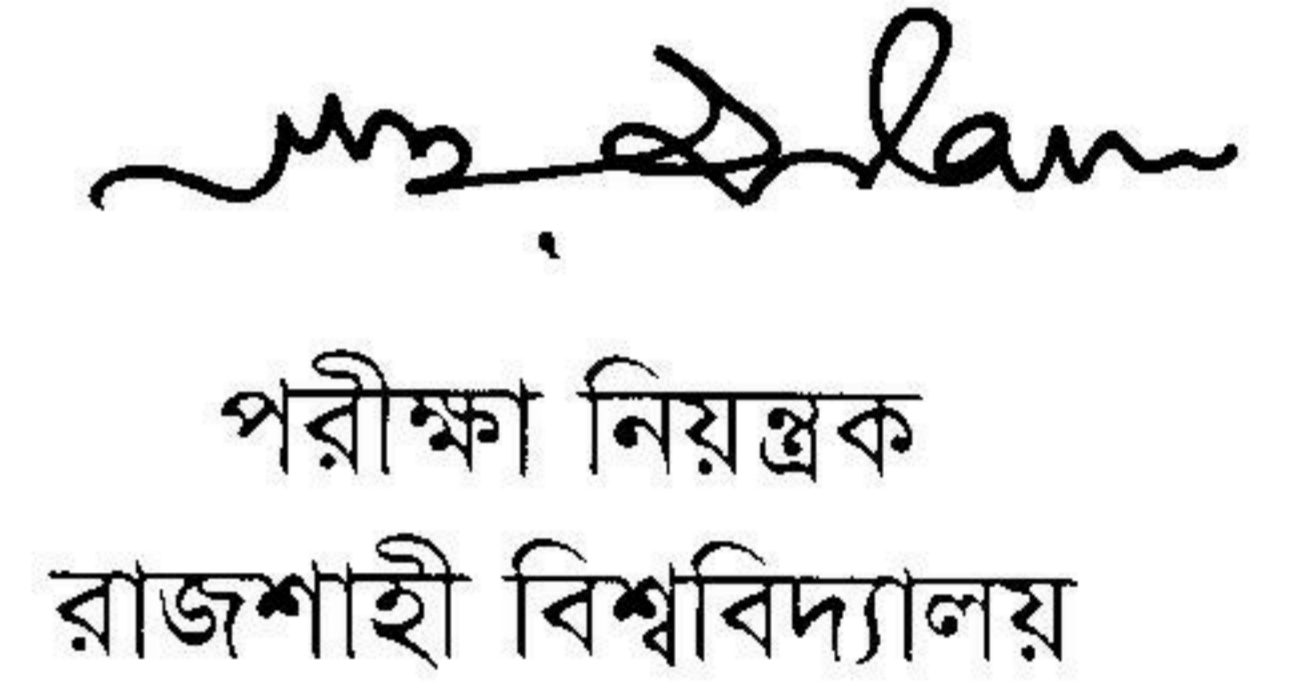 পরীক্ষা নিয়ন্ত্রক
রাজশাহী বিশ্ববিদ্যালয়